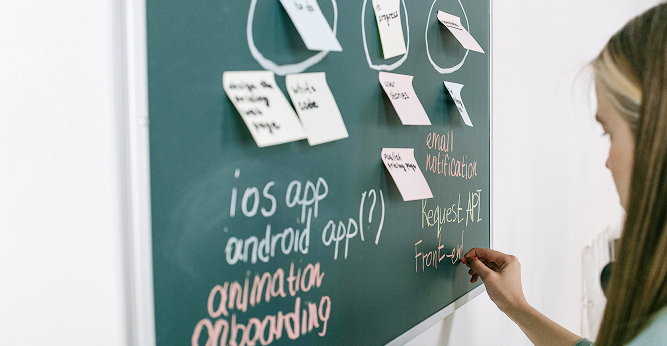 to do
progress
design the
pricing
page
write
code
user
stories
publish
pricing page
email
notification
ios app
android app(?)
Request API
Front-end
animation
onboarding